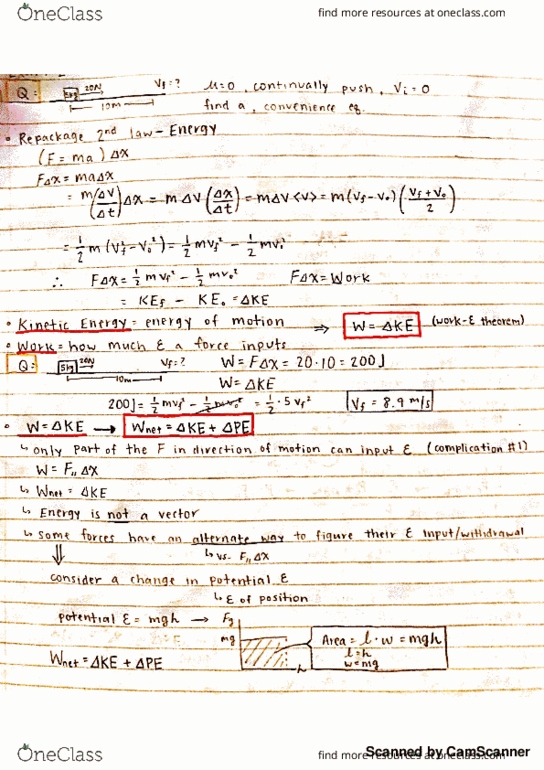 OneClass find more resources at oneclass.com
Q: 5kg 20N Vf=? μ=0, continually push, Vi=0
10m find a, convenience eq.
• Repackage 2nd law - Energy
(F = ma) Δx
FΔx = maΔx
= m(Δv/Δt)Δx = mΔv(Δx/Δt) = mΔv<v> = m(Vf-V₀)((Vf+V₀)/2)
= 1/2 m (Vf²-V₀²) = 1/2 mVf² - 1/2 mV₀²
∴ FΔx = 1/2 mVf² - 1/2 mV₀² FΔx = Work
= KEf - KE₀ = ΔKE
• Kinetic Energy = energy of motion ⇒ W = ΔKE (work-E theorem)
• Work = how much E a force inputs
Q: 5kg 20N Vf=? W = FΔx = 20·10 = 200J
10m W = ΔKE
200J = 1/2 mVf² - 1/2 mV₀² = 1/2 · 5 Vf² Vf = 8.9 m/s
• W = ΔKE → Wnet = ΔKE + ΔPE
↳ only part of the F in direction of motion can input E (complication #1)
W = F∥ Δx
↳ Wnet = ΔKE
↳ Energy is not a vector
↳ some forces have an alternate way to figure their E input/withdrawal
↳ vs. F∥ Δx
⇓
consider a change in potential E
↳ E of position
potential E = mgh → Fg
mg Area = l · w = mgh
l=h
w=mg
Wnet = ΔKE + ΔPE h
Scanned by CamScanner
OneClass find more resources at oneclass.com